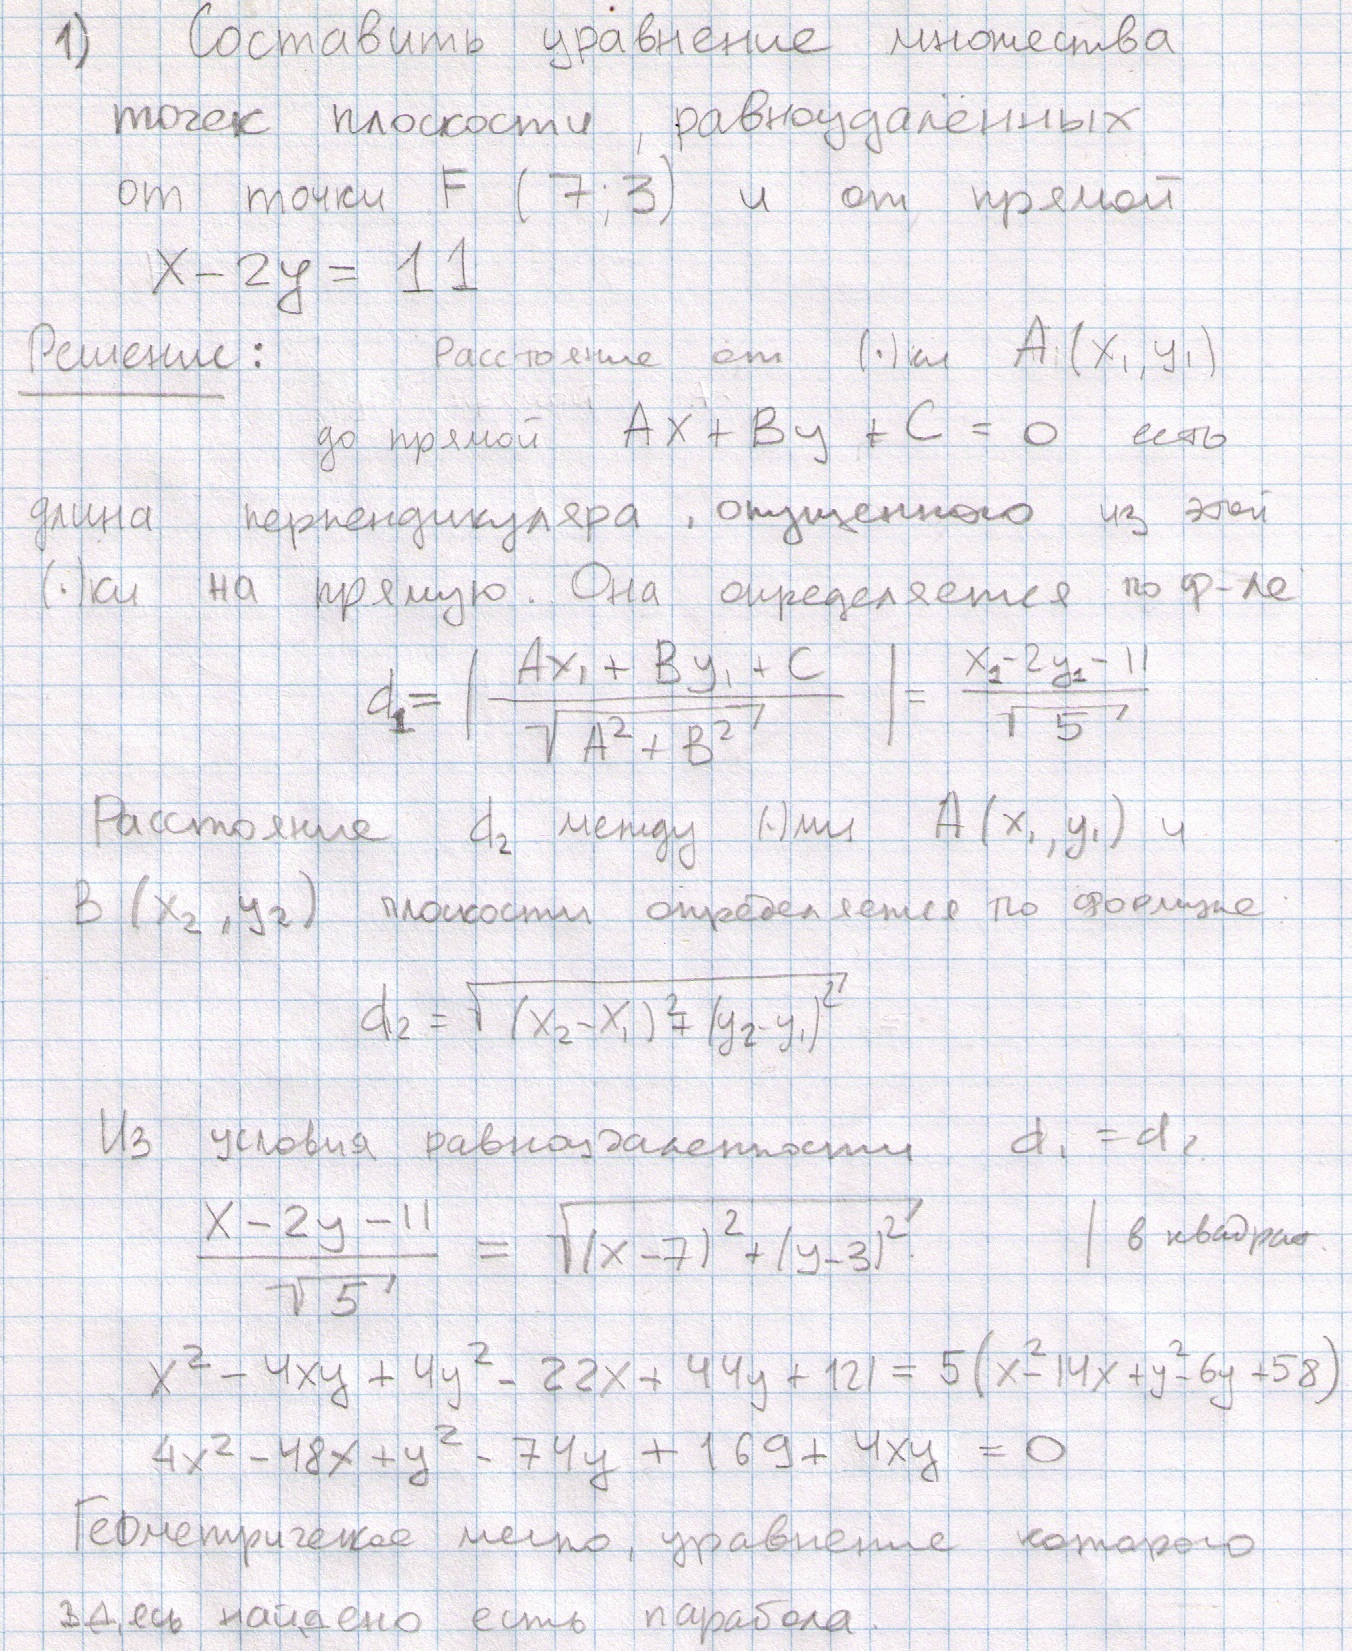 1) Составить уравнение множества
точек плоскости, равноудалённых
от точки F (7; 3) и от прямой
x - 2y = 11
Решение: Расстояние от (·)ки A₁(x₁, y₁)
до прямой Ax + By + C = 0 есть
длина перпендикуляра, опущенного из этой
(·)ки на прямую. Она определяется по ф-ле
d₁ = | (Ax₁ + By₁ + C) / √(A² + B²) | = (x₁ - 2y₁ - 11) / √5
Расстояние d₂ между (·)ми A(x₁, y₁) и
B (x₂, y₂) плоскости определяется по формуле:
d₂ = √((x₂ - x₁)² + (y₂ - y₁)²)
Из условия равноудаленности d₁ = d₂
(x - 2y - 11) / √5 = √((x - 7)² + (y - 3)²) | в квадрат.
x² - 4xy + 4y² - 22x + 44y + 121 = 5(x² - 14x + y² - 6y + 58)
4x² - 48x + y² - 74y + 169 + 4xy = 0
Геометрическое место, уравнение которого
здесь найдено есть парабола.